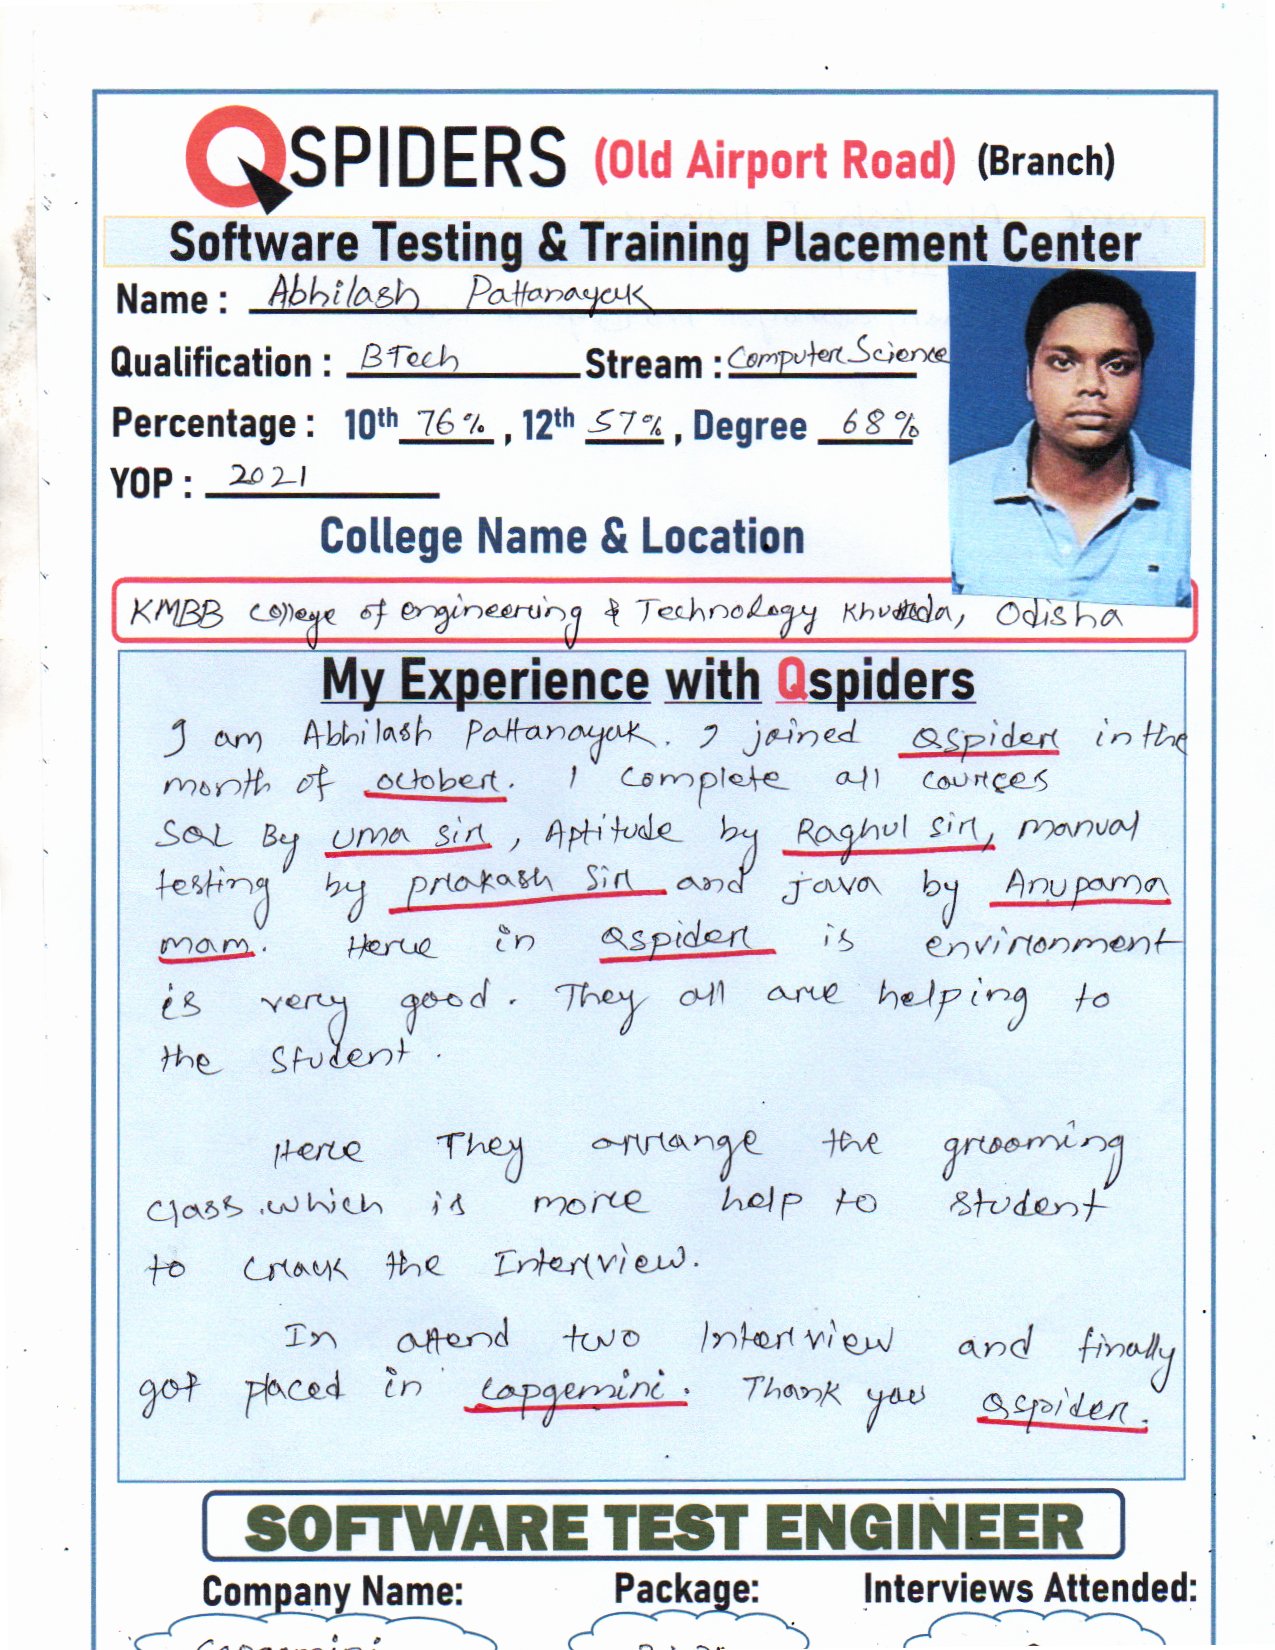 QSPIDERS (Old Airport Road) (Branch)
Software Testing & Training Placement Center
Name : Abhilash Pattanayak
Qualification : BTech Stream : Computer Science
Percentage : 10th 76% , 12th 57% , Degree 68%
YOP : 2021
College Name & Location
KMBB College of Engineering & Technology Khurda, Odisha
My Experience with Qspiders
I am Abhilash Pattanayak. I joined Qspider in the
month of october. I complete all cources
SQL By Uma sir , Aptitude by Raghul sir, manual
testing by prakash Sir and java by Anupama
mam. Here in Qspider is environment
is very good. They all are helping to
the student.
Here They arrange the grooming
class. which is more help to student
to crack the Interview.
In attend two Interview and finally
got placed in capgemini. Thank you Qspider.
SOFTWARE TEST ENGINEER
Company Name: Package: Interviews Attended:
Capgemini